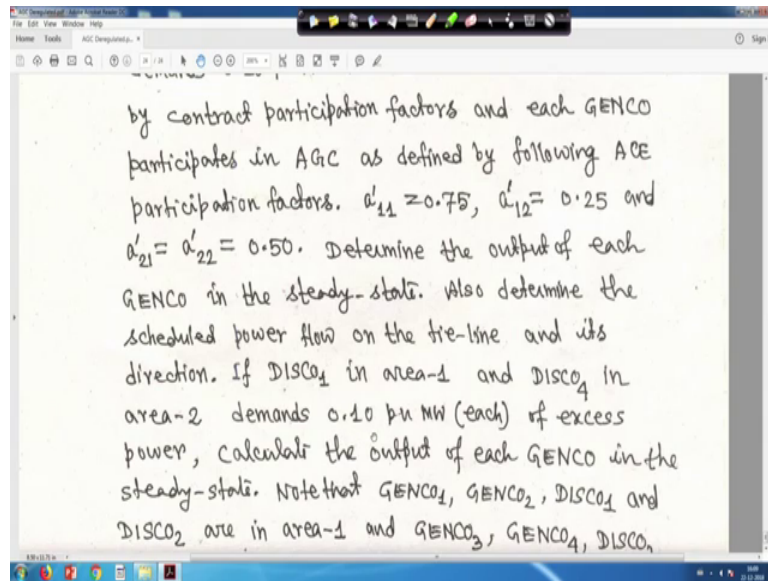 AGC Deregulated.pdf - Adobe Acrobat Reader DC
File Edit View Window Help
Home Tools AGC Deregulated.p... × Sign
by contract participation factors and each GENCO
participates in AGC as defined by following ACE
participation factors. a'11 = 0.75, a'12 = 0.25 and
a'21 = a'22 = 0.50. Determine the output of each
GENCO in the steady-state. Also determine the
scheduled power flow on the tie-line and its
direction. If DISCO1 in area-1 and DISCO4 in
area-2 demands 0.10 pu MW (each) of excess
power, calculate the output of each GENCO in the
steady-state. Note that GENCO1, GENCO2, DISCO1 and
DISCO2 are in area-1 and GENCO3, GENCO4, DISCO